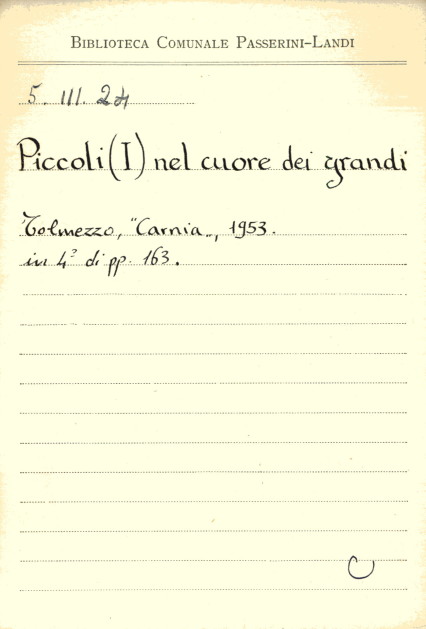 Biblioteca Comunale Passerini-Landi
5. III. 24
Piccoli (I) nel cuore dei grandi
Tolmezzo, "Carnia", 1953.
in 4° di pp. 163.
C